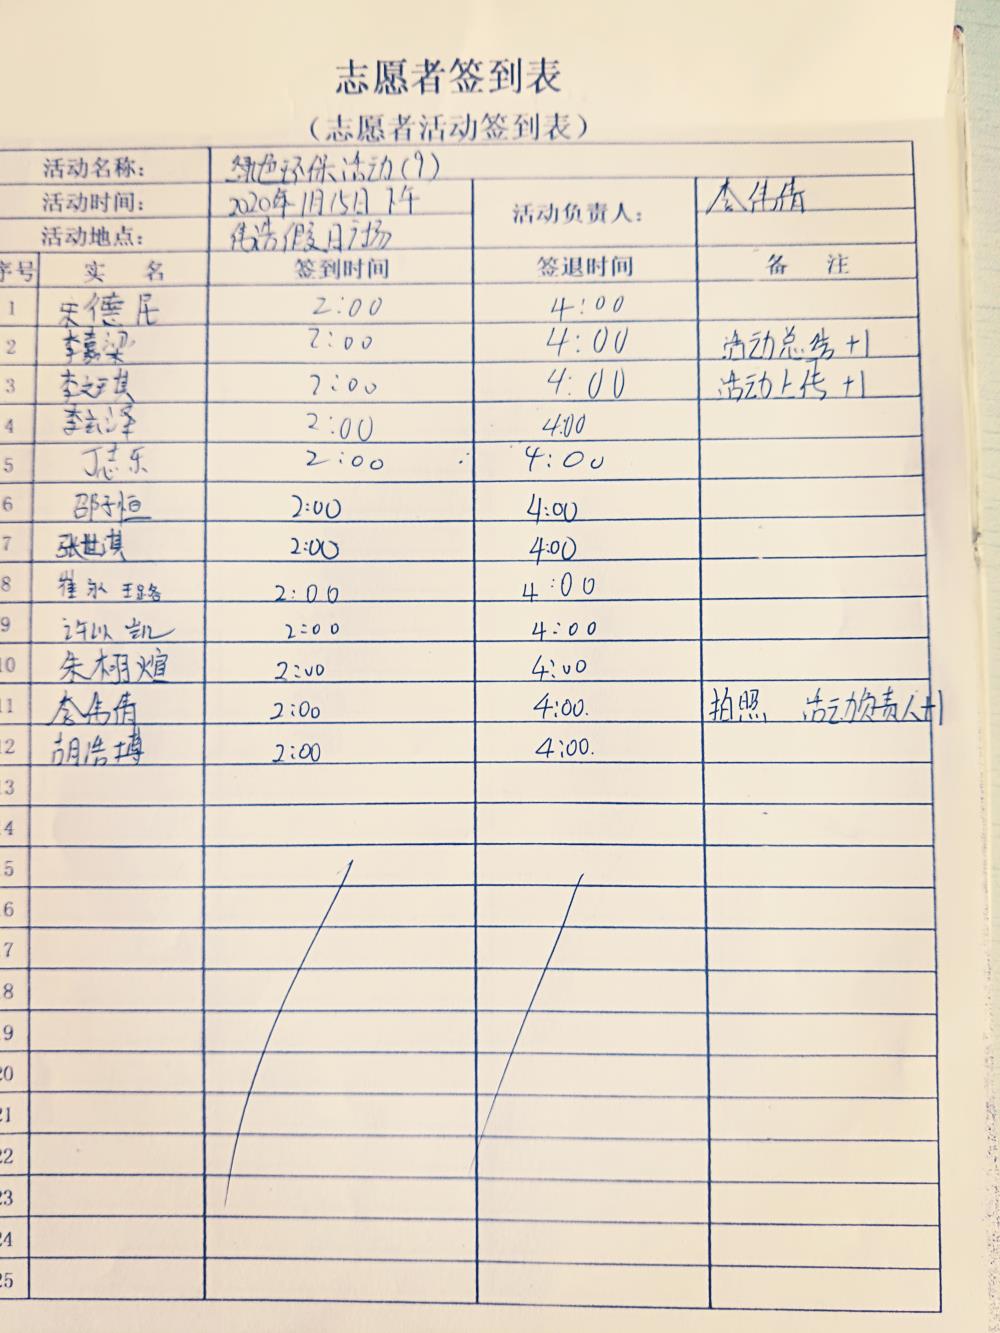 志愿者签到表
（志愿者活动签到表）
活动名称： 绿色环保活动(9)
活动时间： 2020年1月15日下午 活动负责人： 李伟倩
活动地点： 伟浩假日广场
序号 实 名 签到时间 签退时间 备 注
1 宋德尼 2:00 4:00
2 李嘉梁 2:00 4:00 活动总结+1
3 李文琪 2:00 4:00 活动上传+1
4 李玄泽 2:00 4:00
5 丁志乐 2:00 4:00
6 邵子恒 2:00 4:00
7 张世淇 2:00 4:00
8 崔永璐 2:00 4:00
9 许以凯 2:00 4:00
10 朱栩煊 2:00 4:00
11 李伟倩 2:00 4:00. 拍照 活动负责人+1
12 胡浩博 2:00 4:00.
13
14
15
16
17
18
19
20
21
22
23
24
25